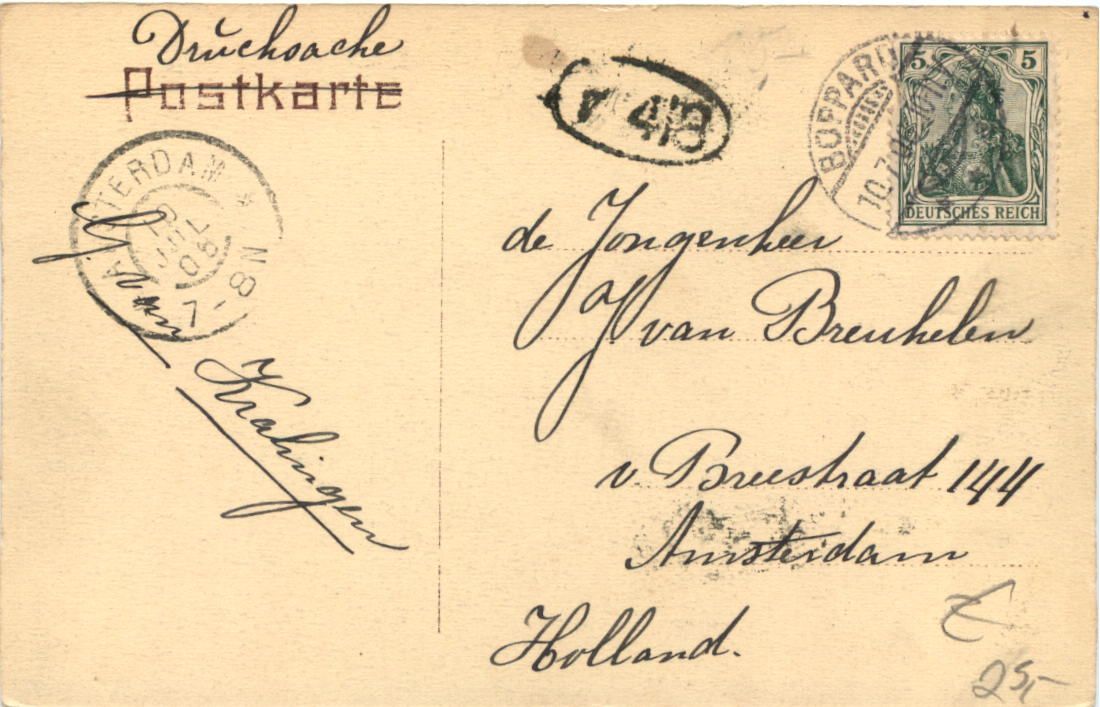 Drucksache
Postkarte
418
BOPPARD
10.7.
5 5
DEUTSCHES REICH
AMSTERDAM *
JUL
08
7-8N
de Jongenheer
J van Breukelen
v Breestraat 144
Amsterdam
Holland.
G. van
Kralingen
25,-